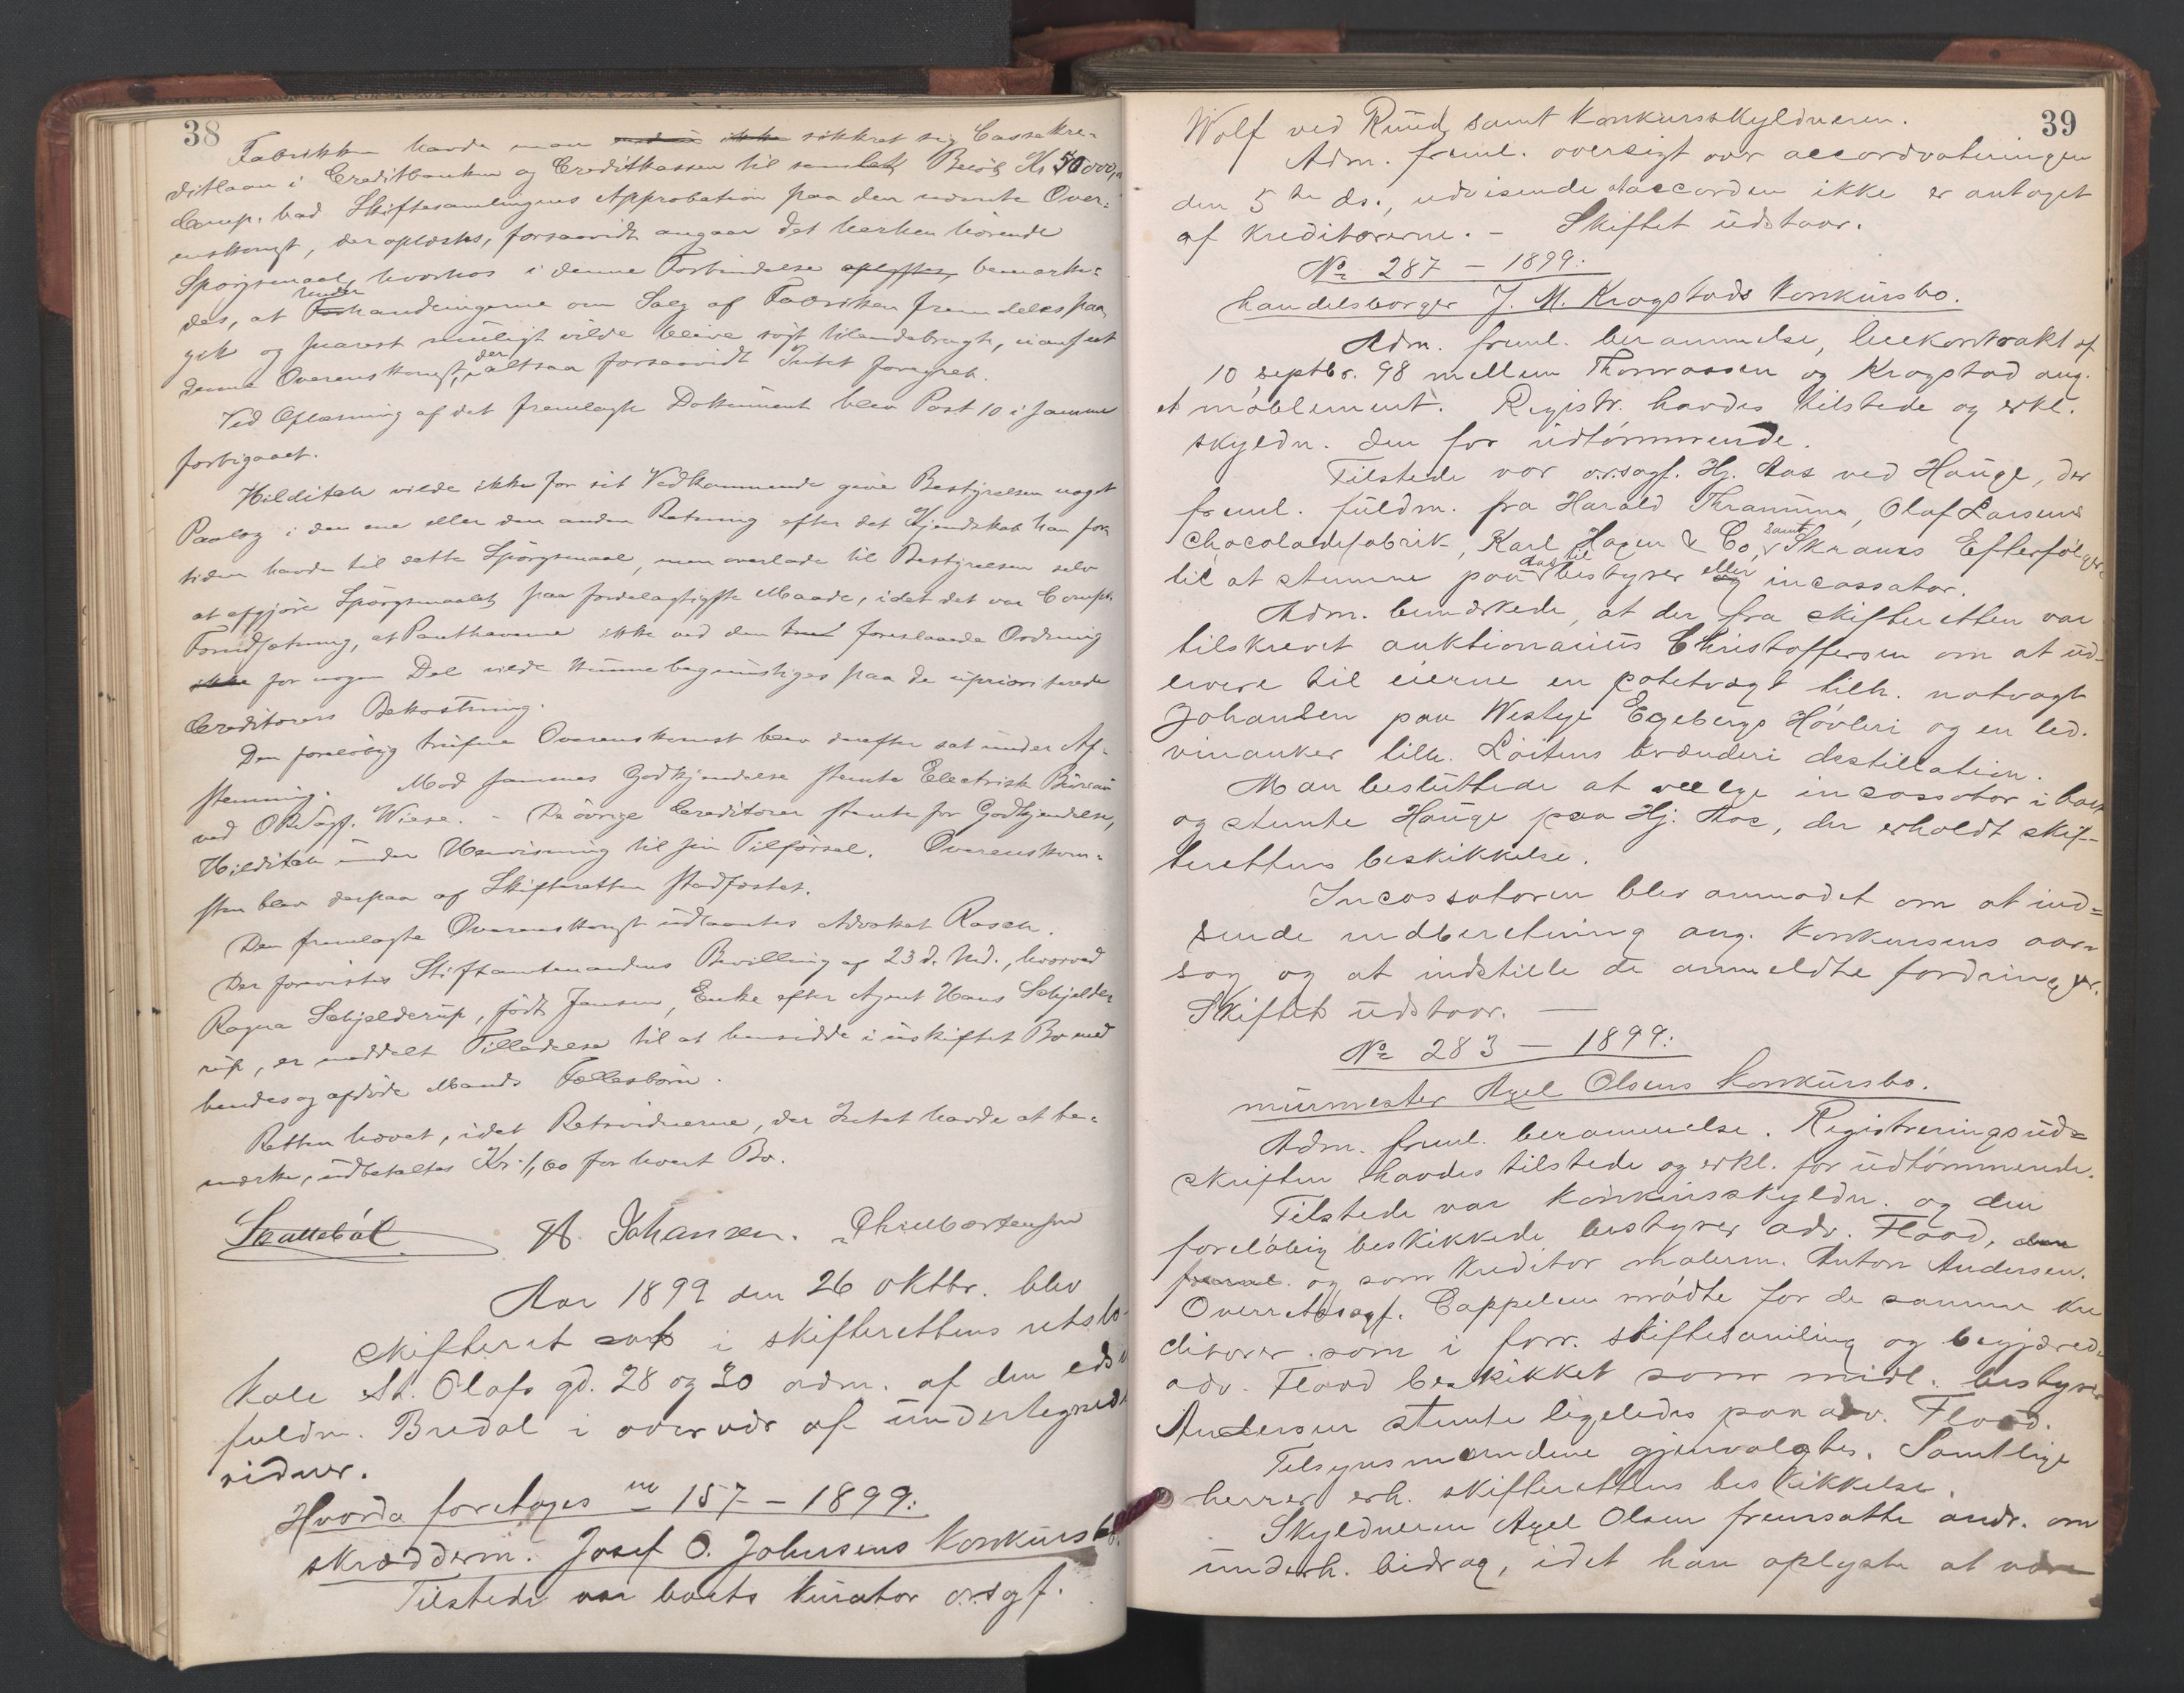 38
Fabrikken havde man endnu ikke sikkret sig Cassekre-
ditlaan i Creditbanken og Creditkassen til samlet Beløb Kr 50000,
Comp. bad Skiftesamlingens Approbation paa den nævnte Over-
enskomst, der oplæstes, forsaavidt angaar det herhen hørende
Spørgsmaal, hvorhos i denne Forbindelse oplystes, bemærke-
des, at Forhandlingerne om Salg af Fabriken fremdeles paa
gik og snarest muligt vilde blive søgt tilendebragt, uanset
denne Overenskomst, der altsaa forsaavidt Intet foregreb.
Ved Oplæsning af det fremlagte Dokument blev Post 10 i samme
forbigaaet.
Hilditch vilde ikke for sit Vedkommende give Bestyrelsen noget
Paalæg i den ene eller den anden Retning efter det Kjendskab han for
tiden havde til dette Spørgsmaal, men overlade til Bestyrelsen selv
at afgjøre Spørgsmaalet paa fordelagtigste Maade, idet det var Comp.
Forudsætning, at Panthaverne ikke ved den foreslaaede Ordning
ikke for nogen Del vilde kunne begunstiges paa de uprioriterede
Creditorers Bekostning.
Den foreløbig trufne Overenskomst blev derefter sat under Af-
stemning. Mod sammes Godkjendelse stemte Electrisk Bureau
ved ORSagf. Wiese. - De øvrige Creditorer stemte for Godkjendelse,
Hilditch under Henvisning til sin Tilførsel. Overenskom-
sten blev derpaa af Skifteretten stadfæstet.
Den fremlagte Overenskomst udlaantes Advokat Rasch.
Der forevistes Stiftamtmandens Bevilling af 23 d. Md., hvorved
Ragna Schjelderup, født Jensen, Enke efter Agent Hans Schjelde-
rup, er meddelt Tilladelse til at hensidde i uskiftet Bo med
hendes og afdøde Mands Fællesbørn.
Retten hævet, idet Retsvidnerne, der Intet havde at be-
mærke, udbetaltes Kr. 1,00 for hvert Bo.
Skattebøl A. Johansen.
Aar 1899 den 26 oktbr. blev
skifteret sat i skifterettens retslo-
kale St. Olafs gd. 28 og 30 adm. af den eds
fuldm. Bredal i overvær af undertegnede
vidner.
Hvorda foretoges no 157 - 1899:
skrædderm. Josef O. Johnsens konkursbo.
Tilstede var boets kurator o.r.sgf.
39
Wolf ved Ruud samt konkursskyldneren.
Adm. freml. oversigt over accordvoteringen
den 5te ds., udvisende at accorden ikke er antaget
af kreditorerne. - Skiftet udstaar.
No 287 - 1899:
handelsborger J. M. Krogstads konkursbo.
Adm. freml. berammelse, leiekontrakt af
10 septbr. 98 mellem Thorvassen og Krogstad ang.
et møblement. Registr. havdes tilstede og erkl.
skyldn. den for udtømmende.
Tilstede var o.rsagf. Hj. Aas ved Hauge, der
freml. fuldm. fra Harald Thranum, Olaf Larsens
chocoladefabrik, Karl Hagen & Co, samt Skrauss Efterfølger
til at stemme paa Aas til bestyrer eller og incassator.
Adm. bemærkede, at der fra skifteretten var
tilskrevet auktionarius Christoffersen om at ud-
levere til eierne en potetvægt tilh. natvagt
Johansen paa Westye Egebergs Høvleri og en led.
vinanker tilh. Løitens brænderi destillation.
Man besluttede at velge incassator i boet
og stemte Hauge paa Hj. Aas, der erholdt skif-
terettens beskikkelse.
Incassatoren blev anmodet om at ind-
sende indberetning ang. konkursens aar-
sag og at indstille de anmeldte fordringer.
Skiftet udstaar. —
No 283 - 1899:
murmester Axel Olsens konkursbo.
Adm. freml. berammelse. Registreringsud-
skriften havdes tilstede og erkl. for udtømmende.
Tilstede var konkursskyldn. og den
foreløbig beskikkede bestyrer adv. Flood, den
freml. og som kreditor malerm. Anton Andersen.
Overretssagf. Cappelen mødte for de samme kre
ditorer som i forr. skiftesamling og begjærede
adv. Flood beskikket som midl. bestyrer
Andersen stemte ligeledes paa adv. Flood.
Tilsynsmændene gjenvalgtes. Samtlige
herrer erh. skifterettens beskikkelse.
Skyldneren Axel Olsen fremsatte andr. om
underh. bidrag, idet han oplyste at være